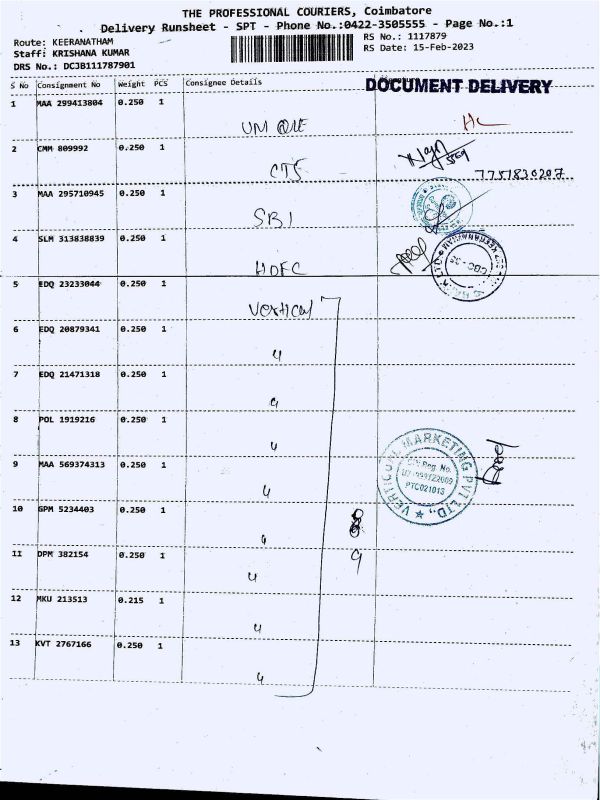 THE PROFESSIONAL COURIERS, Coimbatore
Delivery Runsheet - SPT - Phone No.:0422-3505555 - Page No.:1
Route: KEERANATHAM
Staff: KRISHANA KUMAR
DRS No.: DCJB111787901
RS No.: 1117879
RS Date: 15-Feb-2023
S No Consignment No Weight PCS Consignee Details
DOCUMENT DELIVERY
1 MAA 299413804 0.250 1
2 CMM 809992 0.250 1 CTS
7751830207
3 MAA 295710945 0.250 1 SBI
4 SLM 313838839 0.250 1 HDFC
5 EDQ 23233044 0.250 1 Vertical
6 EDQ 20879341 0.250 1 4
7 EDQ 21471318 0.250 1 4
8 POL 1919216 0.250 1 4
9 MAA 569374313 0.250 1 4
MARKETING PVT LTD.,
Reg. No.
PTC021018
10 GPM 5234403 0.250 1 4
11 DPM 382154 0.250 1 4
9
12 MKU 213513 0.215 1 4
13 KVT 2767166 0.250 1 4